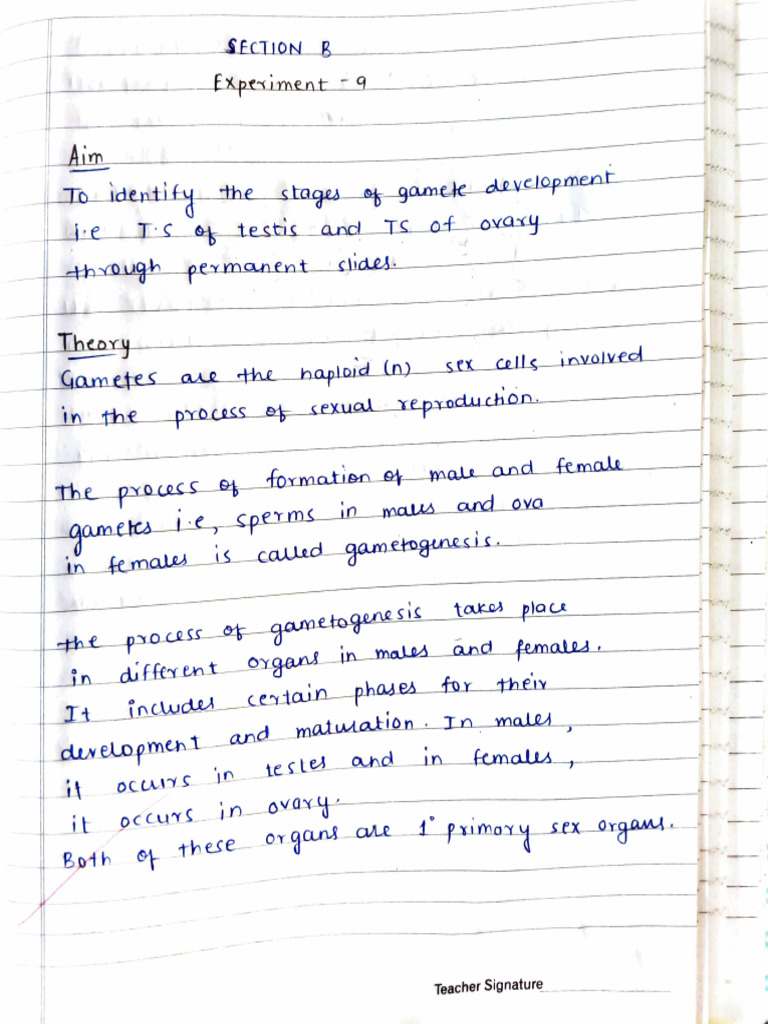 SECTION B
Experiment - 9
Aim
To identify the stages of gamete development
i.e T.S of testis and TS of ovary
through permanent slides.
Theory
Gametes are the haploid (n) sex cells involved
in the process of sexual reproduction.
The process of formation of male and female
gametes i.e, sperms in males and ova
in females is called gametogenesis.
the process of gametogenesis takes place
in different organs in males and females.
It includes certain phases for their
development and maturation. In males,
it occurs in testes and in females,
it occurs in ovary.
Both of these organs are 1° primary sex organs.
Teacher Signature